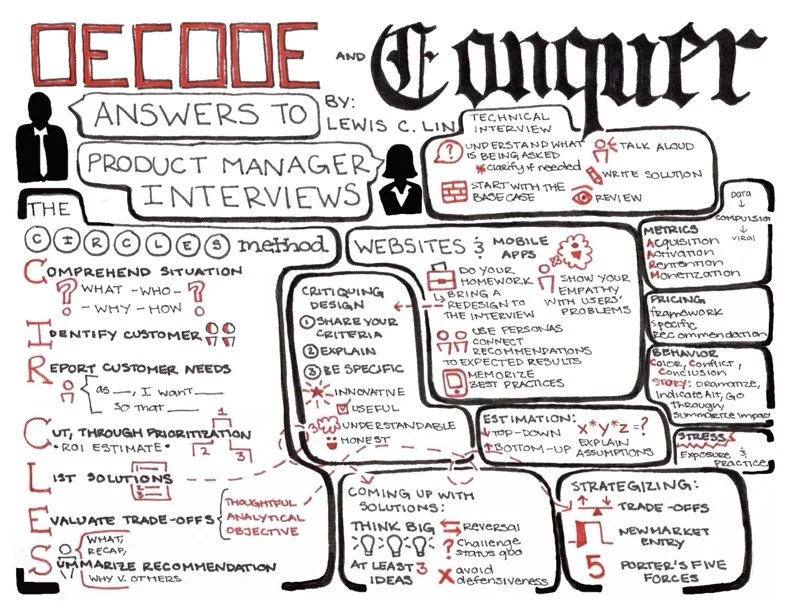 DECODE AND Conquer
ANSWERS TO
BY:
LEWIS C. LIN
PRODUCT MANAGER
INTERVIEWS
TECHNICAL
INTERVIEW
UNDERSTAND WHAT
IS BEING ASKED
*clarify if needed
START WITH THE
BASE CASE
TALK ALOUD
WRITE SOLUTION
REVIEW
THE
CIRCLES method
COMPREHEND SITUATION
? WHAT - WHO - ?
- WHY - HOW
IDENTIFY CUSTOMER
REPORT CUSTOMER NEEDS
as __, I want __
so that __
CUT, THROUGH PRIORITIZATION
• ROI ESTIMATE •
1
2
3
LIST SOLUTIONS
EVALUATE TRADE-OFFS
THOUGHTFUL
ANALYTICAL
OBJECTIVE
WHAT,
RECAP,
SUMMARIZE RECOMMENDATION
WHY V. OTHERS
CRITIQUING
DESIGN
1 SHARE YOUR
CRITERIA
2 EXPLAIN
3 BE SPECIFIC
INNOVATIVE
USEFUL
UNDERSTANDABLE
HONEST
WEBSITES & MOBILE
APPS
DO YOUR
HOMEWORK
BRING A
REDESIGN TO
THE INTERVIEW
SHOW YOUR
EMPATHY
WITH USERS'
PROBLEMS
USE PERSONAS
CONNECT
RECOMMENDATIONS
TO EXPECTED RESULTS
MEMORIZE
BEST PRACTICES
ESTIMATION:
TOP-DOWN
BOTTOM-UP
x*y*z=?
EXPLAIN
ASSUMPTIONS
COMING UP WITH
SOLUTIONS:
THINK BIG
AT LEAST 3
IDEAS
Reversal
? challenge
status quo
X avoid
defensiveness
STRATEGIZING:
TRADE-OFFS
NEW MARKET
ENTRY
5 PORTER'S FIVE
FORCES
DATA
COMPULSION
VIRAL
METRICS
Acquisition
Activation
Retention
Monetization
PRICING
framework
specific
recommendation
BEHAVIOR
Color, Conflict,
Conclusion
STORY: Dramatize,
Indicate Alt, Go
Through,
Summarize Impact
STRESS
Exposure &
Practice